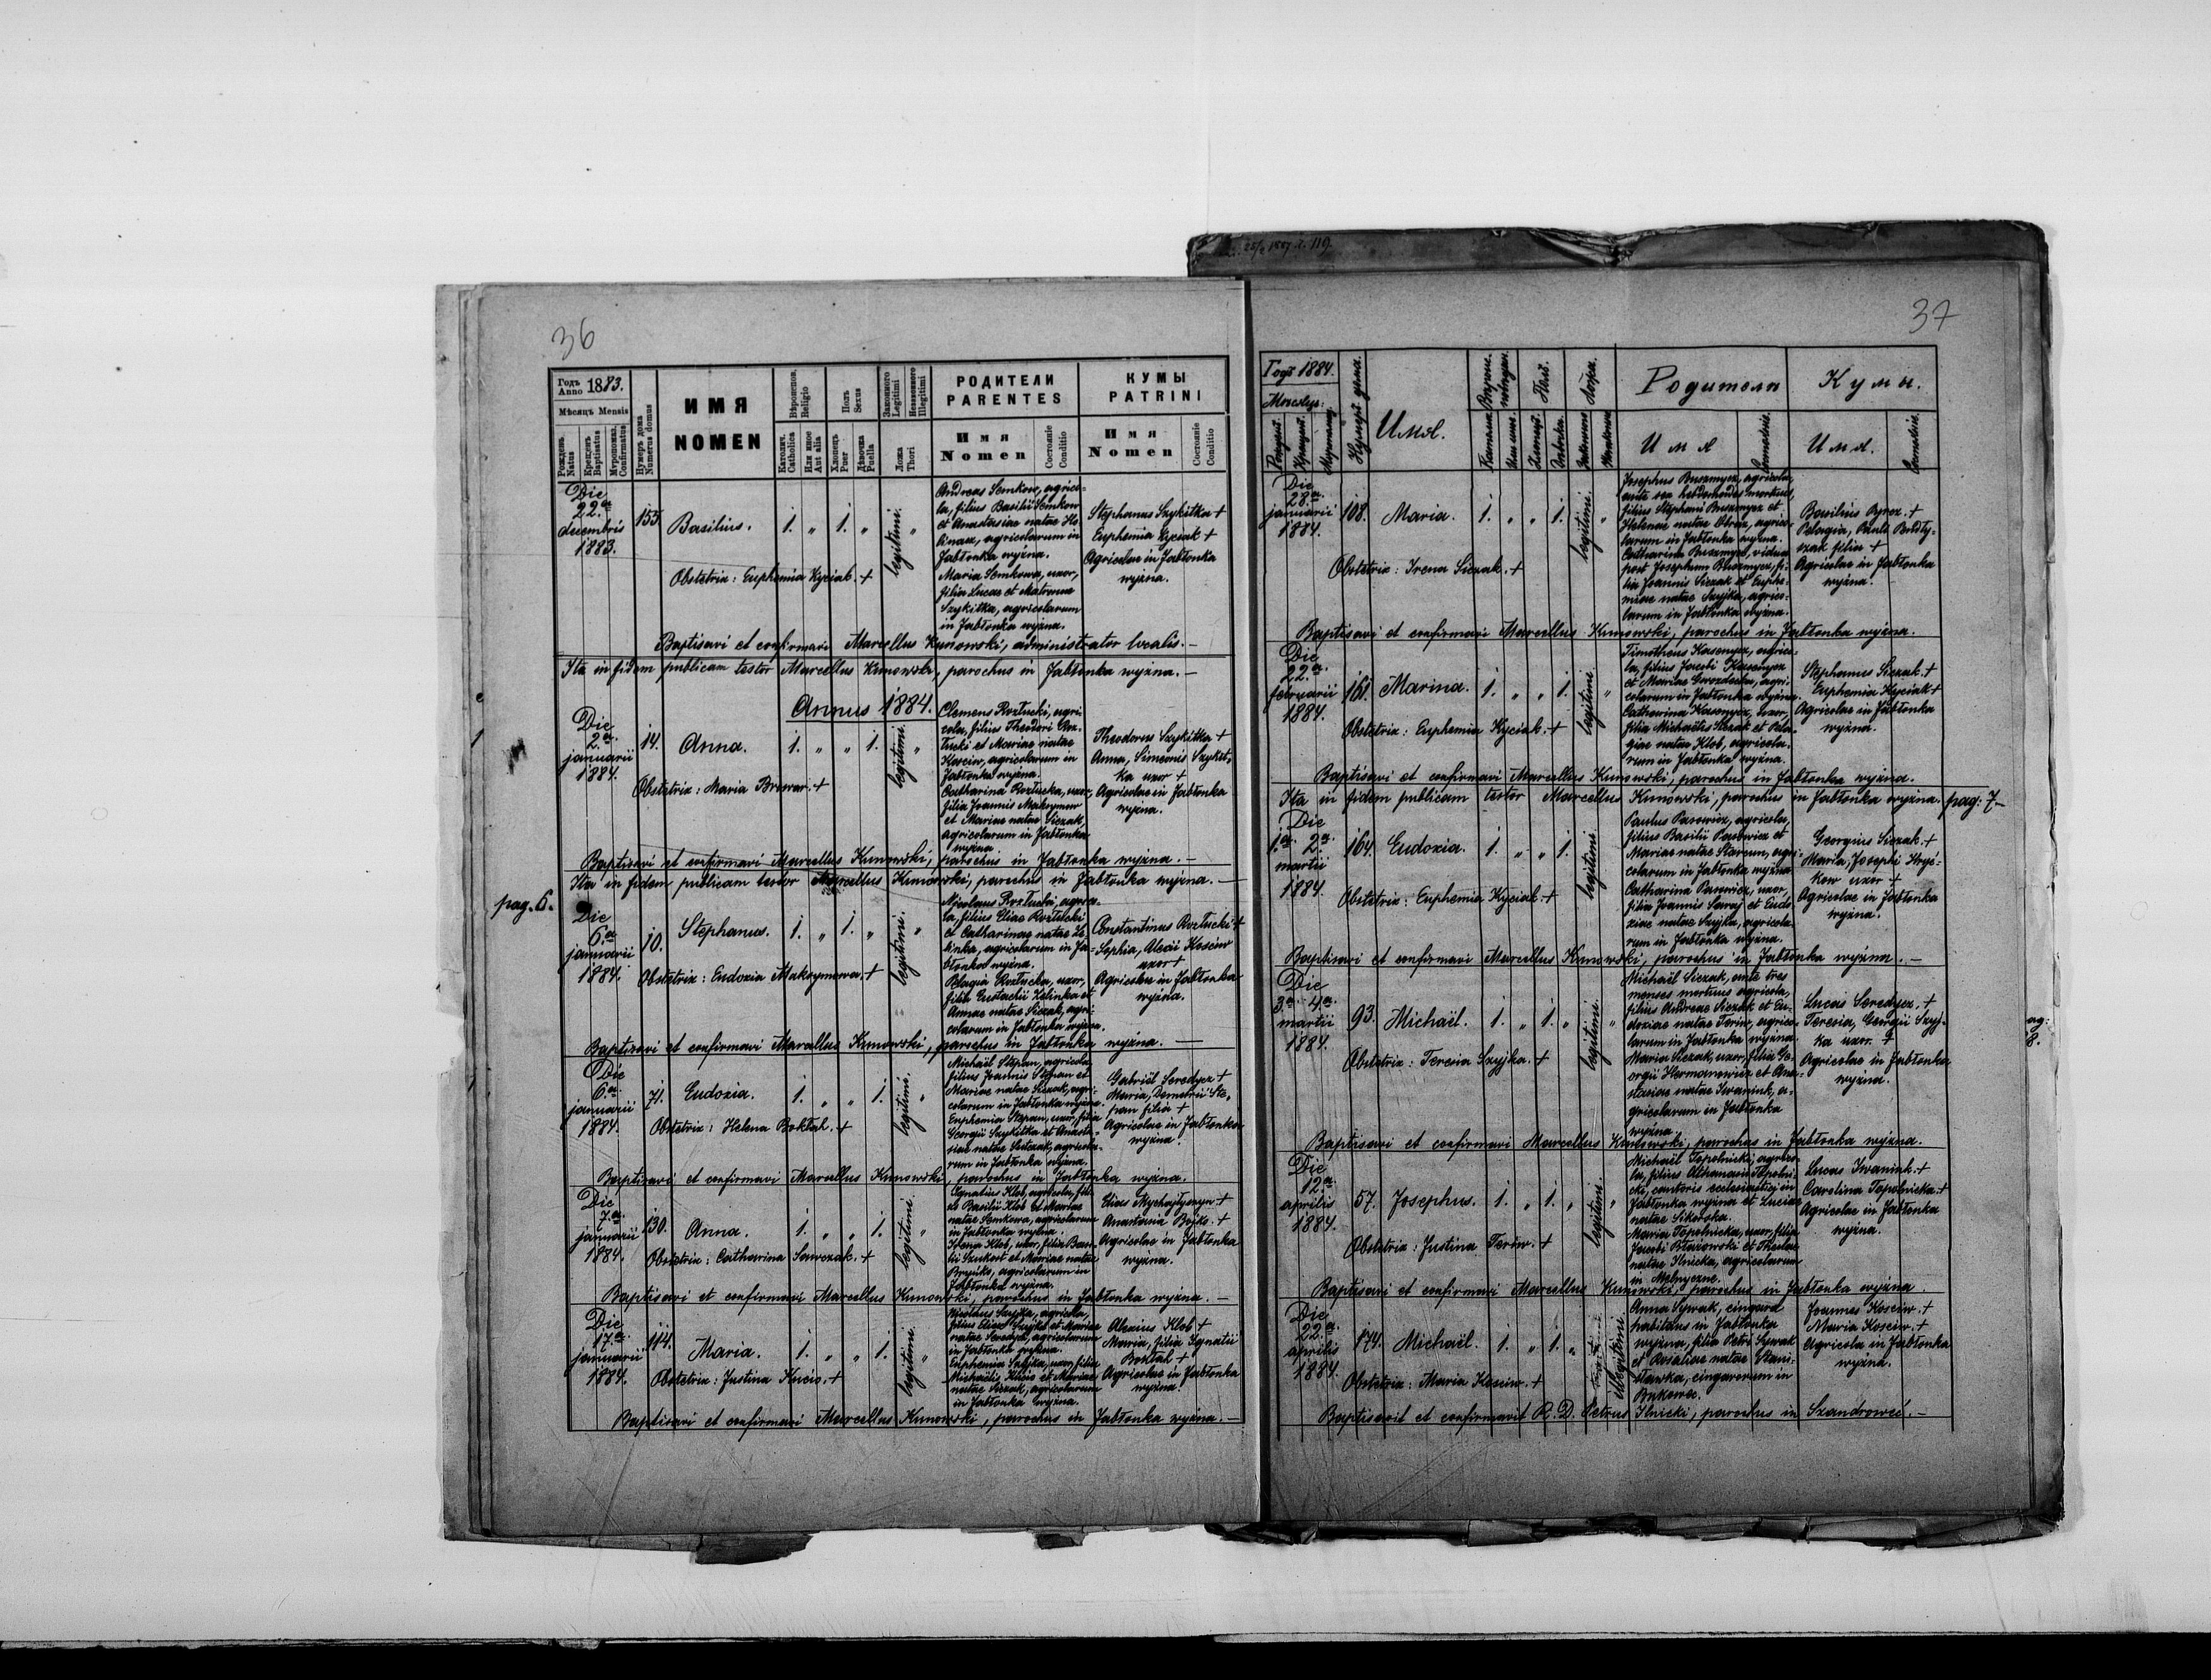 25/2 1887 л. 119.
36
Годъ Anno 1883.
Мѣсяцъ Mensis
Рожденъ Natus
Крещенъ Baptisatus
Муропомаз. Confirmatus
Нумеръ дома Numerus domus
ИМЯ
NOMEN
Вѣроисповѣд. Religio
Католич. Catholica
Или иное Aut alia
Полъ Sexus
Хлопецъ Puer
Дѣвочка Puella
Законного Legitimi
Незаконного Illegitimi
Ложа Thori
РОДИТЕЛИ
PARENTES
Имя
Nomen
Состояніе Conditio
КУМЫ
PATRINI
Имя
Nomen
Состояніе Conditio
Die
22a
decembris
1883.
155
Basilius.
1. „ 1. „
legitimi.
Obstetrix: Euphemia Kyciak. +
Andreas Semkow, agrico-
la, filius Basilii Semkow
et Anastasiae natae
agricolarum in
Jabłonka wyżna.
Maria Semkowa, uxor,
filia Lucae et Matronae
Szykitka, agricolarum
in Jabłonka wyżna.
Stephanus Szykitka +
Euphemia Kyciak +
Agricolae in Jabłonka
wyżna.
Baptisavi et confirmavi Marcellus Kunowski, administrator localis. –
Ita in fidem publicam testor Marcellus Kunowski, parochus in Jabłonka wyżna. –
Annus 1884.
Die
2a
januarii
1884.
14.
Anna.
1. „ „ 1.
legitimi. „
Obstetrix: Maria Browar. +
Clemens Rozłucki, agri-
cola, filius Theodori Roz-
łucki et Mariae natae
Kosciw, agricolarum in
Jabłonka wyżna.
Catharina Rozłucka, uxor,
filia Joannis Maksymow
et Mariae natae Siczak,
agricolarum in Jabłonka
wyżna
Theodorus Szykitka +
Anna, Simeonis Szykit-
ka uxor +
Agricolae in Jabłonka
wyżna.
Baptisavi et confirmavi Marcellus Kunowski, parochus in Jabłonka wyżna. –
Ita in fidem publicam testor Marcellus Kunowski, parochus in Jabłonka wyżna. –
pag. 6.
Die
6a
januarii
1884.
10.
Stephanus.
1. „ 1. „
legitimi. „
Obstetrix: Eudoxia Maksymowa. +
Nicolaus Rozłucki, agrico-
la, filius Eliae Rozłucki
et Catharinae natae Ze-
linka, agricolarum in Ja-
błonka wyżna.
Pelagia Rozłucka, uxor,
filia Eustachii Zelinka et
Annae natae Siczak, agri-
colarum in Jabłonka wyżna.
Constantinus Rozłucki +
Sophia, Alexii Kosciw
uxor +
Agricolae in Jabłonka
wyżna.
Baptisavi et confirmavi Marcellus Kunowski, parochus in Jabłonka wyżna. –
Die
6a
januarii
1884.
71.
Eudoxia.
1. „ „ 1.
legitimi. „
Obstetrix: Helena Boktah. +
Michaël Stepan, agricola
filius Joannis Stepan et
Mariae natae Siczak, agri-
colarum in Jabłonka wyżna.
Euphemia Stepan, uxor, filia
Georgii Szykitka et Anasta-
siae natae agricola-
rum in Jabłonka wyżna.
Gabriël Seredycz +
Maria, Demetrii Ste-
pan filia +
Agricolae in Jabłonka
wyżna.
Baptisavi et confirmavi Marcellus Kunowski, parochus in Jabłonka wyżna.
Die
7a
januarii
1884.
130.
Anna.
1. „ „ 1.
legitimi. „
Obstetrix: Catharina Sawczak. +
Ignatius Klob, agricola, fili-
us Basilii Klob et Mariae
natae Semkowa, agricolarum
in Jabłonka wyżna.
Irena Klob, uxor, filia Basi-
lii et Mariae natae
agricolarum in
Jabłonka wyżna.
Elias +
Anastasia Bojko. +
Agricolae in Jabłonka
wyżna.
Baptisavi et confirmavi Marcellus Kunowski, parochus in Jabłonka wyżna. –
Die
17a
januarii
1884.
114.
Maria.
1. „ „ 1.
legitimi. „
Obstetrix: Justina Kucio. +
Nicolaus Szyjka, agricola,
filius Eliae Szyjka et Mariae
natae Seredycz, agricolarum
in Jabłonka wyżna.
Euphemia Szyjka, uxor, filia
Michaëlis Kucio et Mariae
natae Siczak, agricolarum
in Jabłonka wyżna.
Alexius Klob +
Maria, filia Ignatii
Boktah +
Agricolae in Jabłonka
wyżna.
Baptisavi et confirmavi Marcellus Kunowski, parochus in Jabłonka wyżna. –
37
Годъ 1884.
Мѣсяцъ:
Нумеръ дома.
Имя.
Полъ.
Ложа.
Родители
Имя
Кумы.
Имя.
Die
28a
januarii
1884.
108.
Maria.
1. „ „ 1.
legitimi. „
Obstetrix: Irena Siczak. +
Josephus Buszmycz, agricola,
ante sex hebdomades mortuus,
filius Stephani Buszmycz et
Helenae natae Obraz, agrico-
larum in Jabłonka wyżna.
Catharina Buszmycz, vidua
post Josephum Buszmycz, fi-
lia Joannis Siczak et Euphe-
miae natae Szyjka, agrico-
larum in Jabłonka wyżna.
Basilius Pyroz. +
Pelagia, Pauli
filia +
Agricolae in Jabłonka
wyżna.
Baptisavi et confirmavi Marcellus Kunowski, parochus in Jabłonka wyżna.
Die
22a
februarii
1884.
161.
Marina.
1. „ „ 1.
legitimi. „
Obstetrix: Euphemia Kyciak. +
Timotheus Kasenycz, agrico-
la, filius Jacobi Kasenycz
et Mariae agri-
colarum in Jabłonka wyżna.
Catharina Kasenycz, uxor,
filia Michaëlis Siczak et Pela-
giae natae Klob, agricola-
rum in Jabłonka wyżna.
Stephanus Siczak. +
Euphemia Kyciak +
Agricolae in Jabłonka
wyżna.
Baptisavi et confirmavi Marcellus Kunowski, parochus in Jabłonka wyżna.
Ita in fidem publicam testor Marcellus Kunowski, parochus in Jabłonka wyżna. pag: 7–
Die
1a 2a
martii
1884.
164.
Eudoxia.
1. „ „ 1.
legitimi
Obstetrix: Euphemia Kyciak. +
Paulus Pasowicz, agricola,
filius Basilii Pasowicz et
Mariae natae agri-
colarum in Jabłonka wyżna
Catharina Pasowicz, uxor,
filia Joannis et Eudo-
xiae natae Szyjka, agricola-
rum in Jabłonka wyżna.
Georgius Siczak. +
Maria, Josephi
uxor +
Agricolae in Jabłonka
wyżna.
Baptisavi et confirmavi Marcellus Kunowski, parochus in Jabłonka wyżna. –
Die
3a 4a
martii
1884.
93.
Michaël.
1. „ 1. „
legitimi. „
Obstetrix: Teresia Szyjka. +
Michaël Siczak, ante tres
menses mortuus agricola,
filius Andreae Siczak et Eu-
doxiae natae Teriw, agrico-
larum in Jabłonka wyżna.
Maria Siczak, uxor, filia Ge-
orgii Hermanowicz et Ana-
stasiae natae Iwaniuk, a-
gricolarum in Jabłonka
wyżna.
Lucas Seredycz, +
Teresia, Georgii Szyj-
ka uxor. +
Agricolae in Jabłonka
wyżna.
ag:
8.
Baptisavi et confirmavi Marcellus Kunowski, parochus in Jabłonka wyżna.
Die
12a
aprilis
1884.
57.
Josephus.
1. „ 1. „
legitimi. „
Obstetrix: Justina Teriw. +
Michaël Topolnicki, agrico-
la, filius Athanasii Topolni-
cki, cantoris ecclesiastici in
Jabłonka wyżna et Luciae
natae Sikorska.
Maria Topolnicka, uxor, filia
Jacobi et Theclae
natae Ilnicka, agricolarum
in Melnyczne.
Lucas Iwaniuk. +
Carolina Topolnicka. +
Agricolae in Jabłonka
wyżna.
Baptisavi et confirmavi Marcellus Kunowski, parochus in Jabłonka wyżna.
Die
22a
aprilis
1884.
174.
Michaël.
1. „ 1. „
Illegitimi.
Obstetrix: Maria Kosciw. +
Anna Sywak, cingara
habitans in Jabłonka
wyżna, filia Petri Sywak
et Rosaliae natae Stani-
slawka, cingarorum in
Bukowec.
Joannes Kosciw. +
Maria Kosciw. +
Agricolae in Jabłonka
wyżna.
Baptisavit et confirmavit R. D. Petrus Ilnicki, parochus in Szandrowec. –